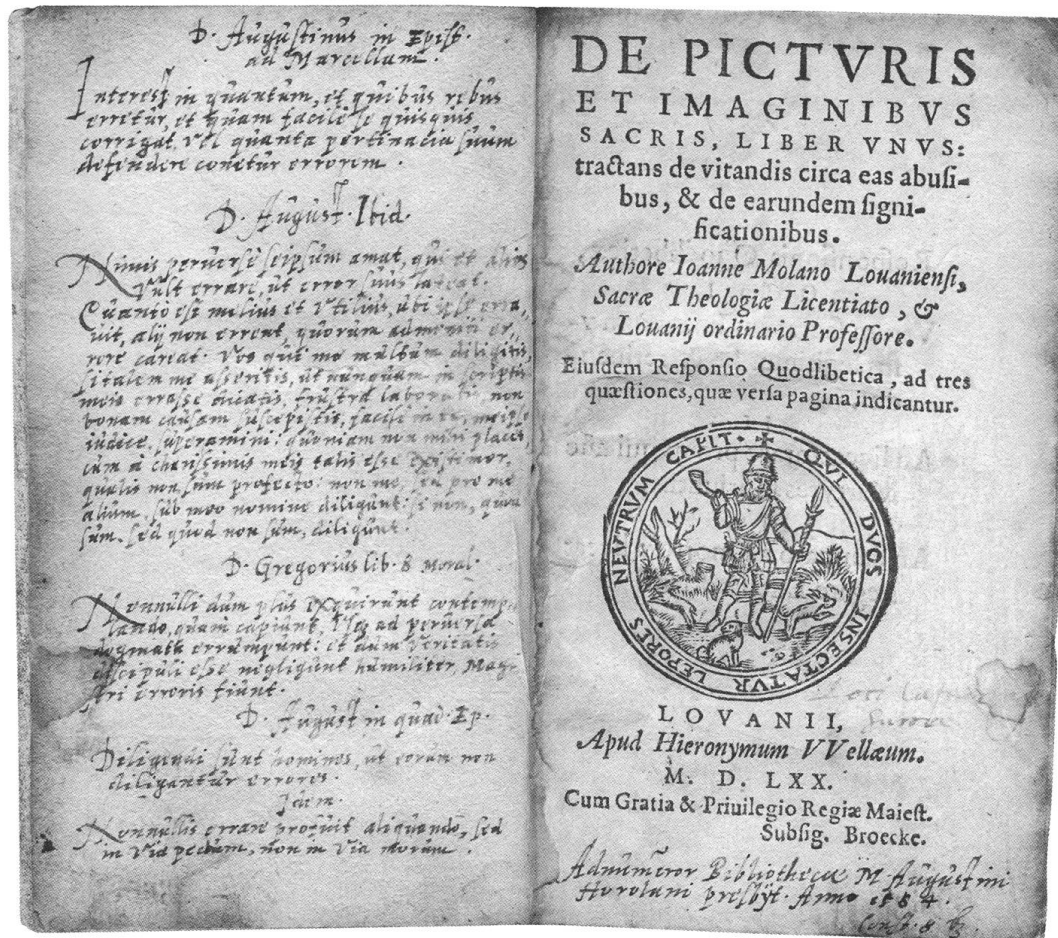 D. Augustinus in Epist.
ad Marcellam.
Interest in quantum, et quibus rebus
erretur, et quam facile se quisquis
corrigat, vel quanta pertinacia suum
defendere conetur errorem.
D. August. Ibid.
Nimis perversè seipsum amat, qui et alios
vult errare, ut error suus lateat.
Quanto est melius et utilius, ubi ipse erra,
uit, alij non errent, quorum admonitu er,
rore careat. Vos qui me multum diligitis,
si talem me asseritis, ut nunquam in scriptis
meis errasse dicatis, frustra laboratis, non
bonam causam suscepistis, facilè in ea, meipso
iudice, superamini: quoniam non mihi placet
cum à charissimis meis talis esse existimor,
qualis non sum profecto: non me, sed pro me
alium, sub meo nomine diligunt: si non, quod
sum, sed quod non sum, diligunt.
D. Gregorius lib. 8 Moral.
Nonnulli dum plus exquirunt contemp
lando, quam capiunt, usq; ad perversa
dogmata errumpunt: et dum veritatis
discipuli esse negligunt humiliter, Magi
stri erroris fiunt.
D. August in quad. Ep.
Diligendi sunt homines, ut eorum non
diligantur errores.
Idem.
Nonnullis errare profuit aliquando, sed
in via pedum, non in via morum.
DE PICTVRIS
ET IMAGINIBVS
SACRIS, LIBER VNVS:
tractans de vitandis circa eas abusi-
bus, & de earundem signi-
ficationibus.
Authore Ioanne Molano Louaniensi,
Sacræ Theologiæ Licentiato, &
Louanij ordinario Professore.
Eiusdem Responsio Quodlibetica, ad tres
quæstiones, quæ versa pagina indicantur.
QVI DVOS INSECTATVR LEPORES NEVTRVM CAPIT.
LOVANII,
Apud Hieronymum VVellæum.
M. D. LXX.
Cum Gratia & Priuilegio Regiæ Maiest.
Subsig. Broecke.
Adnumeror Bibliothecæ M. Augustini
Horolani presbyt. Anno 1584.